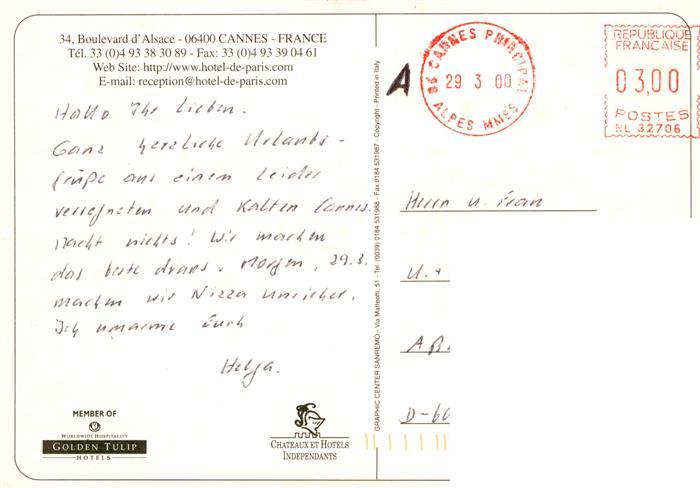 34, Boulevard d'Alsace - 06400 CANNES - FRANCE
Tél. 33 (0)4 93 38 30 89 - Fax: 33 (0)4 93 39 04 61
Web Site: http://www.hotel-de-paris.com
E-mail: reception@hotel-de-paris.com
Hallo Ihr Lieben.
Ganz herzliche Urlaubs-
grüße aus einem leider
verregneten und kalten Cannes.
Macht nichts! Wir machen
das beste draus. Morgen, 29.3.
machen wir Nizza unsicher.
Ich umarme Euch
Helga.
MEMBER OF
WORLDWIDE HOSPITALITY
GOLDEN TULIP
HOTELS
CHATEAUX ET HOTELS
INDEPENDANTS
GRAPHIC CENTER SANREMO - Via Matteotti, 51 - Tel. (0039) 0184 531988 - Fax 0184 531987 - Copyright - Printed in Italy
A
06 CANNES PRINCIPAL
29 3 00
ALPES MMES
REPUBLIQUE
FRANCAISE
03,00
POSTES
NL 32706
Herrn u. Frau
U. +
AB
D-60